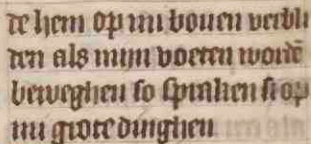 te hem op mi bouen verbli
den als mijn voeten wordē
beweghen so spraken si op
mi grote dinghen